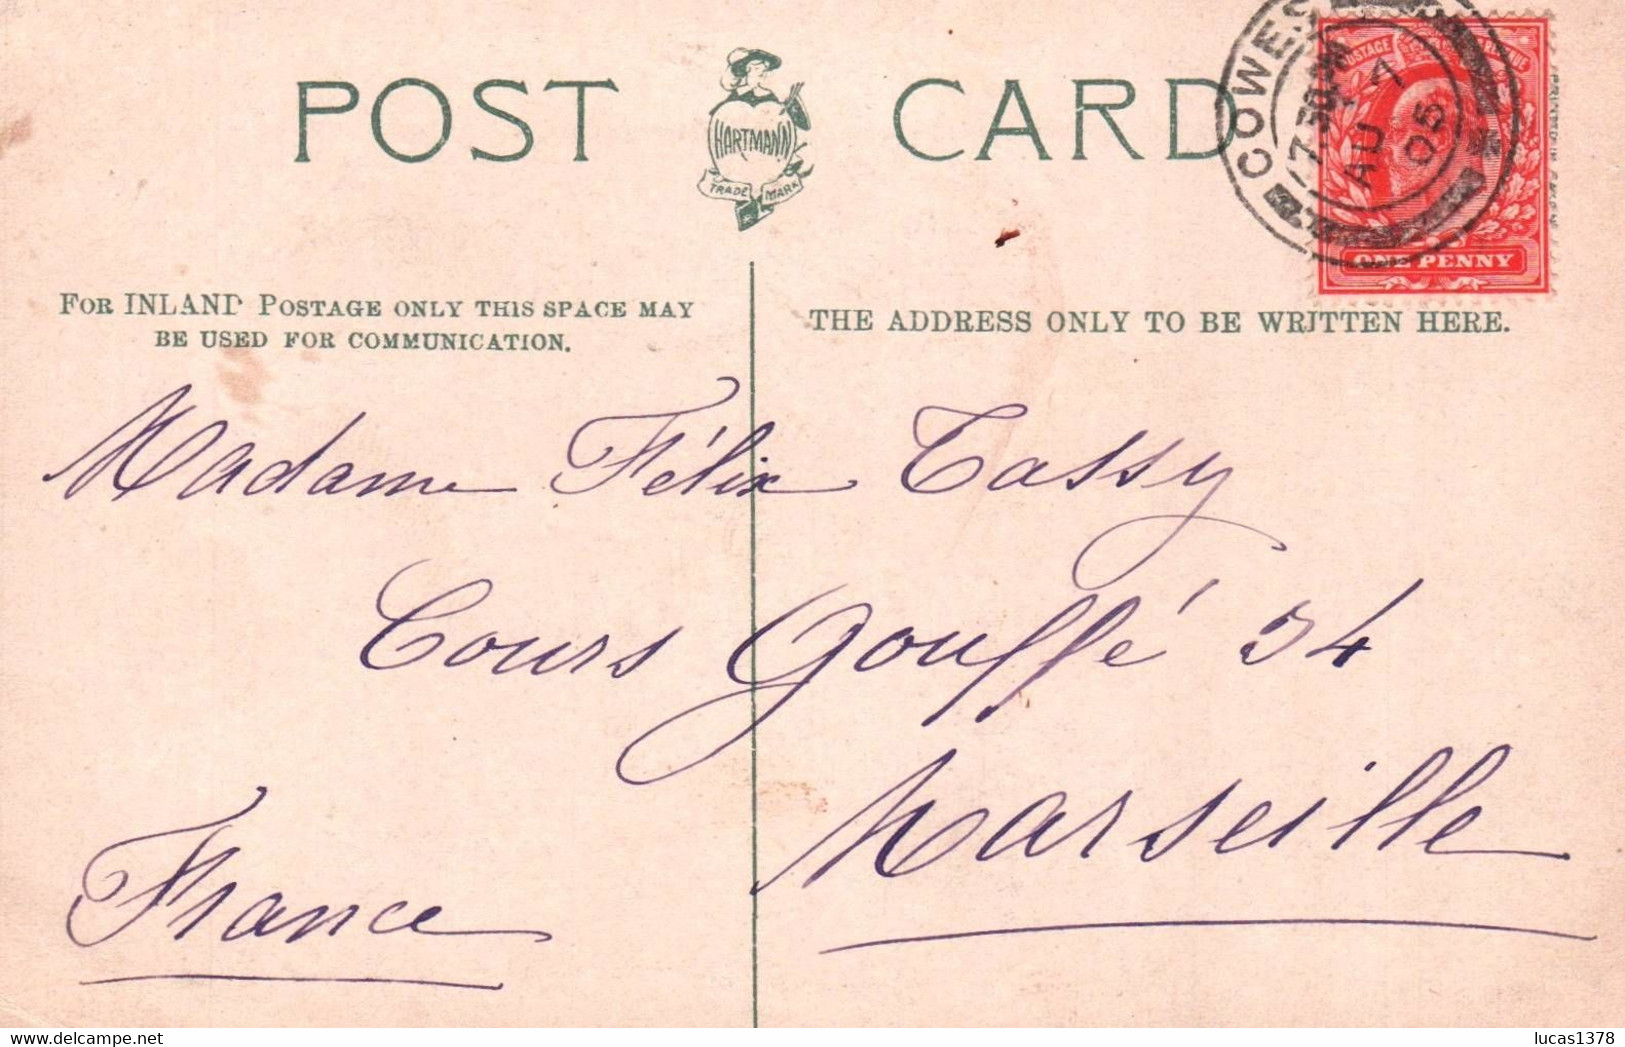 POST CARD
HARTMANN
TRADE MARK
COWES
7.30PM
AU 4
05
POSTAGE REVENUE
ONE PENNY
FOR INLAND POSTAGE ONLY THIS SPACE MAY
BE USED FOR COMMUNICATION.
THE ADDRESS ONLY TO BE WRITTEN HERE.
Madame Félix Tassy
Cours Gouffé 54
Marseille
France
lucas1378